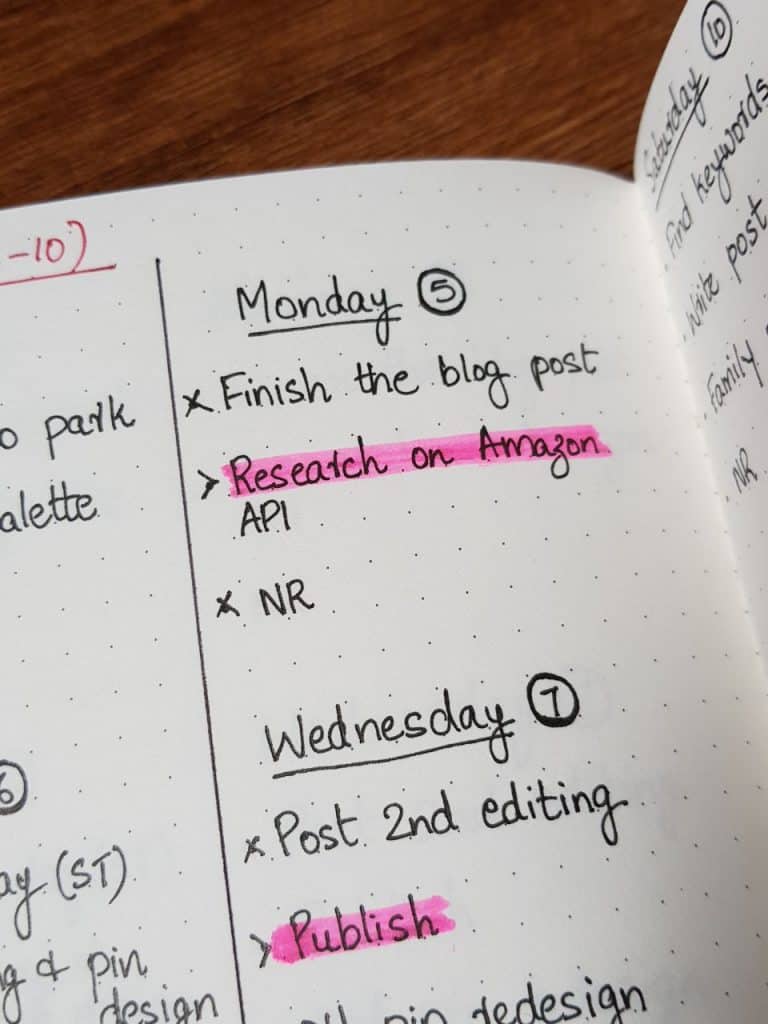 -10)
park
alette
6
ay (ST)
g & pin
design
Monday 5
x Finish the blog post
> Research on Amazon
API
x NR
Wednesday 7
x Post 2nd editing
> Publish
pin redesign
Saturday 10
. Find keywords
. Write post
. Family
. NR